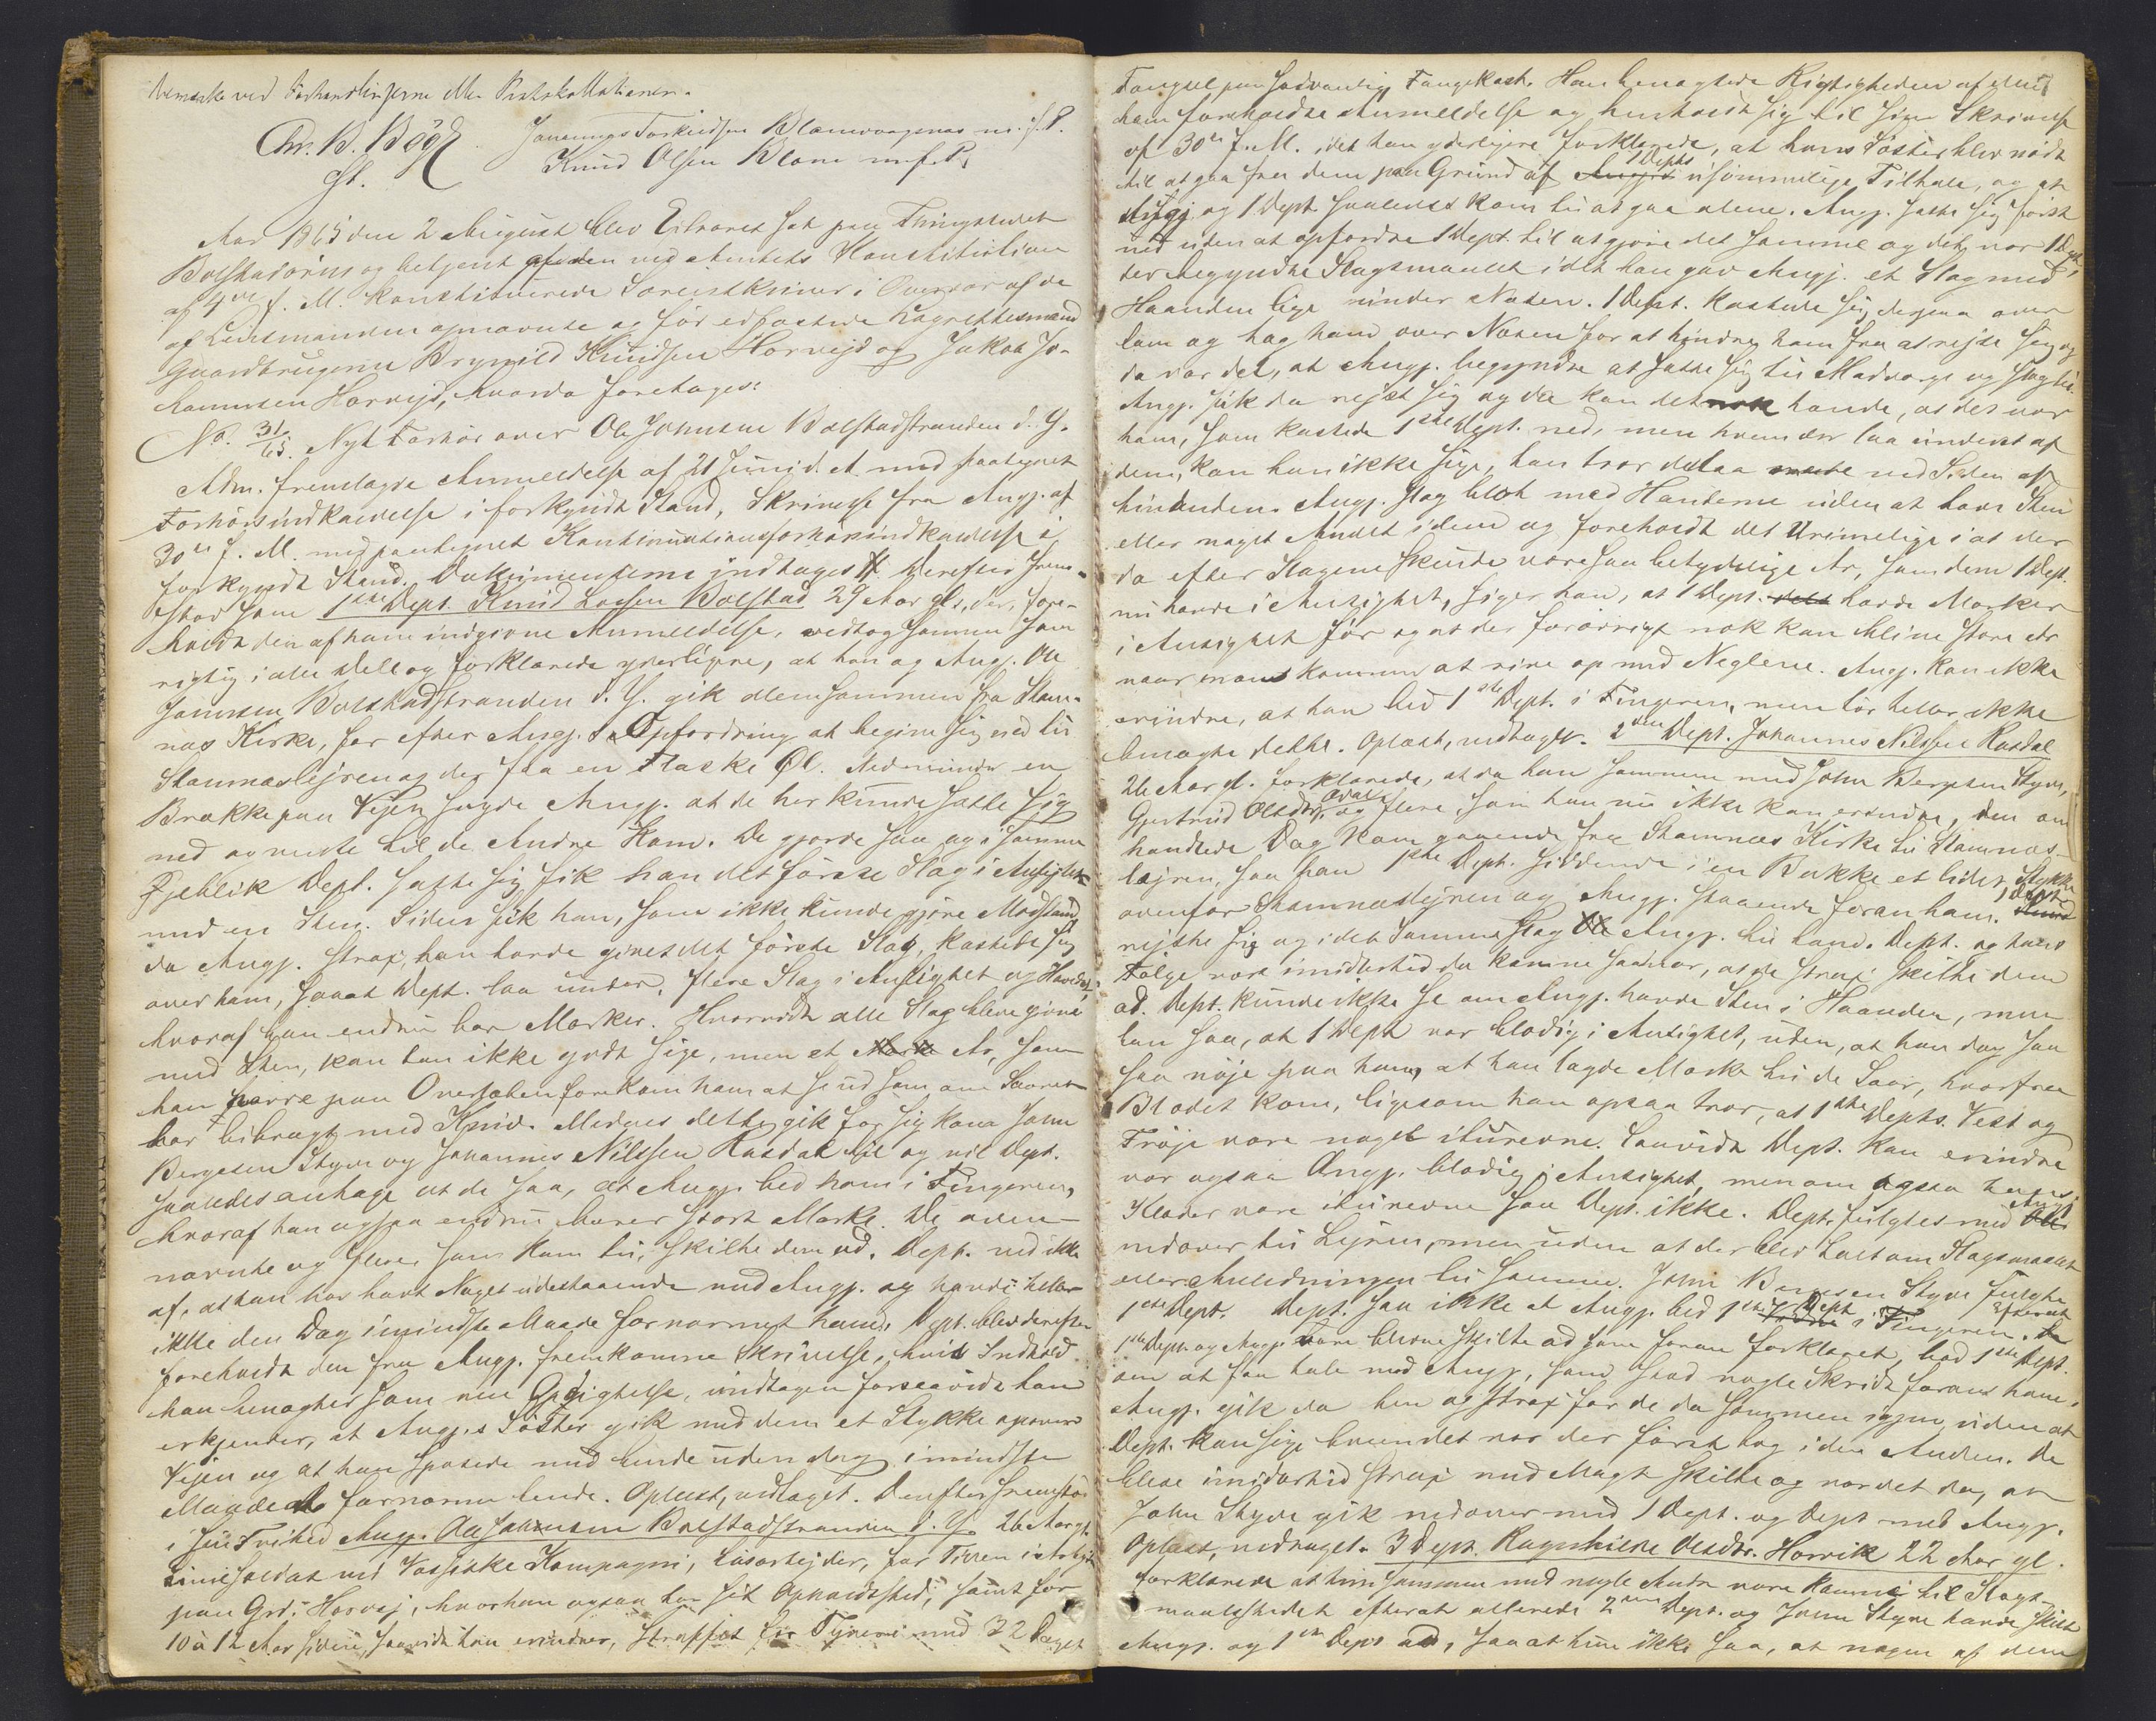 bemærke ved Forhandlingerne eller Protokollationen.
Chr. B. Bøgh Johannes Torkildsen Blomvaagnæs m. f. P.
cst. Knud Olsen Blom m. f. P.
Aar 1865 den 2 August blev Extraret sat paa Thingstedet
Bolstadøren og betjent af den ved Amtets Konstitution
af 4de f. M. konstituerede Sorenskriver i Overvær af de
af Lensmanden opnævnte og før edfæstede Lagrettesmænd
Gaardbrugerne Brynild Knudsen Horvejd og Jakob Jo-
hannesen Horvejd, hvorda foretoges:
No. 31/65. Nyt Forhør over Ole Johnsen Bolstadstranden d. Y.
Adm. fremlagde Anmeldelse af 21 Juni d. A. med paategnet
Forhørsindkaldelse i forkyndt Stand, Skrivelse fra Angj. af
30te f. M. med paategnet Kontinuationsforhørsindkaldelse i
forkyndt Stand. Dokumenterne indtages #. Derefter frem-
stod som 1ste Dept. Knud Larsen Bolstad 29 Aar gl., der, fore-
holdt den af ham indgivne Anmeldelse, vedtog samme som
rigtig i alle Dele og forklarede yderligere, at han og Angj. Ole
Johnsen Bolstadstranden d. Y. gik alene sammen fra Stam-
næs Kirke, for efter Angj.s Opfordring at begive sig ned til
Stamnæslejren og der faa en Flaske Øl. Nedenunder en
Brække paa Vejen sagde Angj. at de her kunde sætte sig
ned og vente til de Andre kom. De gjorde saa og i samme
Øjeblik Dept. satte sig fik han det første Slag i Ansigtet
med en Sten. Siden fik han, som ikke kunde gjøre Modstand,
da Angj. strax, han havde givet det første Slag, kastede sig
over ham, saaat Dept. laa under, flere Slag i Ansigtet og Hovedet,
hvoraf han endnu bar Mærker. Hvorvidt alle Slag bleve givne
med Sten, kan han ikke godt sige, men et Mærke Ar, som
han havde paa Overlæben forekom ham at se ud som om Saaret
var bibragt med Kniv. Medens dette gik for sig kom John
Bergesen Styve og Johannes Nilssen Rasdal til og vil Dept.
saaledes antage at de saa, at Angj. bed ham i Fingeren,
hvoraf han ogsaa endnu bærer stort Mærke. De oven-
nævnte og flere, som kom til, skilte dem ad. Dept. ved ikke
af, at han har havt Noget udestaaende med Angj. og havde heller
ikke den Dag i mindste Maade fornærmet ham. Dept. blev derefter
foreholdt den fra Angj. fremkomne Skrivelse, hvis Indhold
han benægter som ren Opdigtelse, undtagen forsaavidt han
erkjender, at Angj.s Søster gik med dem et Stykke opover
Vejen og at han spasede med hende uden dog i mindste
Maade at fornærme hende. Oplæst, vedtaget. Derefter fremstod
i sin Frihed Angj. Ole Johnsen Bolstadstranden d. Y. 26 Aar gl.
Liniesoldat ved Vossiske Kompagni, Løsarbejder, for Tiden i Arbejde
paa Grd. Horvej, hvor han ogsaa har sit Opholdssted, samt for
10 à 12 Aar siden, saavidt han erindrer, straffet for Tyveri med 32 Dages
Fængsel paa sædvanlig Fangekost. Han benægtede Rigtigheden af den
ham foreholdte Anmeldelse og henholdt sig til sin Skrivelse
af 30te f. M., idet han yderligere forklarede, at hans Søster blev nødt
til at gaa fra dem paa Grund af Angj.s 1 Depts usømmelige Tiltale, og at
Angj. og 1 Dept. saaledes kom til at gaa alene. Angj. satte sig først
ned uden at opfordre 1 Dept. til at gjøre det samme og det var 1 Dept.
der begyndte Slagsmaalet idet han gav Angj. et Slag med
Haanden lige under Næsen. 1 Dept. kastede sig derpaa over
ham og tog ham over Næsen for at hindre ham fra at rejse sig og
da var det, at Angj. begyndte at sætte sig til Modværge og slog til.
Angj. fik da rejst sig og da kan det nok hænde, at det var
ham, som kastede 1ste Dept. ned, men hvem der laa underst af
dem, kan han ikke sige, han tror de laa mest ved Siden af
hinanden. Angj. slog blot med Hænderne uden at have Sten
eller noget Andet i dem og foreholdt det Urimelige i at der
da efter Slagene skulde være saa betydelige Ar, som dem 1 Dept.
nu havde i Ansigtet, siger han, at 1 Dept. havde Mærker
i Ansigtet før og at der forøvrigt nok kan blive store Ar
naar man kommer at rive op med Neglene. Angj. kan ikke
erindre, at han bed 1ste Dept. i Fingeren, men tør heller ikke
benægte dette. Oplæst, vedtaget. 2den Dept. Johannes Nilssen Rasdal
26 Aar gl. forklarede, at da han sammen med John Bergesen Styve,
Gertrud Olsdtr. og flere som han nu ikke kan erindre, den om-
handlede Dag kom gaaende fra Stamnæs Kirke til Stamnæs-
lejren, saa han 1ste Dept. siddende i en Bakke et lidet Stykke
ovenfor Stamnæslejren og Angj. staaende foran ham. 1 Dept.
rejste sig og i det Samme slog Angj. til ham. Dept. og hans
Følge vare imidlertid da komne saa nær, at de strax skilte dem
ad. Dept. kunde ikke se om Angj. havde Sten i Haanden, men
han saa, at 1 Dept var blodig i Ansigtet, uden, at han dog saa
saa nøje paa ham, at han lagde Mærke til de Saar, hvorfra
Blodet kom, ligesom han ogsaa tror, at 1ste Depts. Vest og
Trøje vare noget iturevne. Saavidt Dept. kan erindre
var ogsaa Angj. blodig i Ansigtet, men om ogsaa hans
Klæder vare iturevne saa Dept. ikke. Dept. fulgtes med Ole Angj.
nedover til Lejren, men uden at der blev talt om Slagsmaalet
eller Anledningen til samme. John Bergesen Styve fulgte
1ste Dept. Dept. saa ikke at Angj. bed 1ste Dept i Fingeren. Efterat
1ste Dept. og Angj. vare blevne skilte ad som foran forklaret, bad 1ste Dept.
om at faa tale med Angj., som stod nogle Skridt foran ham.
Angj. gik da hen og strax for de da sammen igjen, uden at
Dept. kan sige hvem det var der først tog i den Anden. De
bleve imidlertid strax med Magt skilte og var det da, at
John Styve gik nedover med 1 Dept. og Dept med Angj.
Oplæst, vedtaget. 3 Dept. Ragnhilde Olsdtr. Horvik 22 Aar gl.
forklarede at hun sammen med nogle Andre vare komne til Slags-
maalstedet efterat allerede 2den Dept. og John Styve havde skilt
Angj. og 1ste Dept ad, saa at hun ikke saa, at nogen af dem